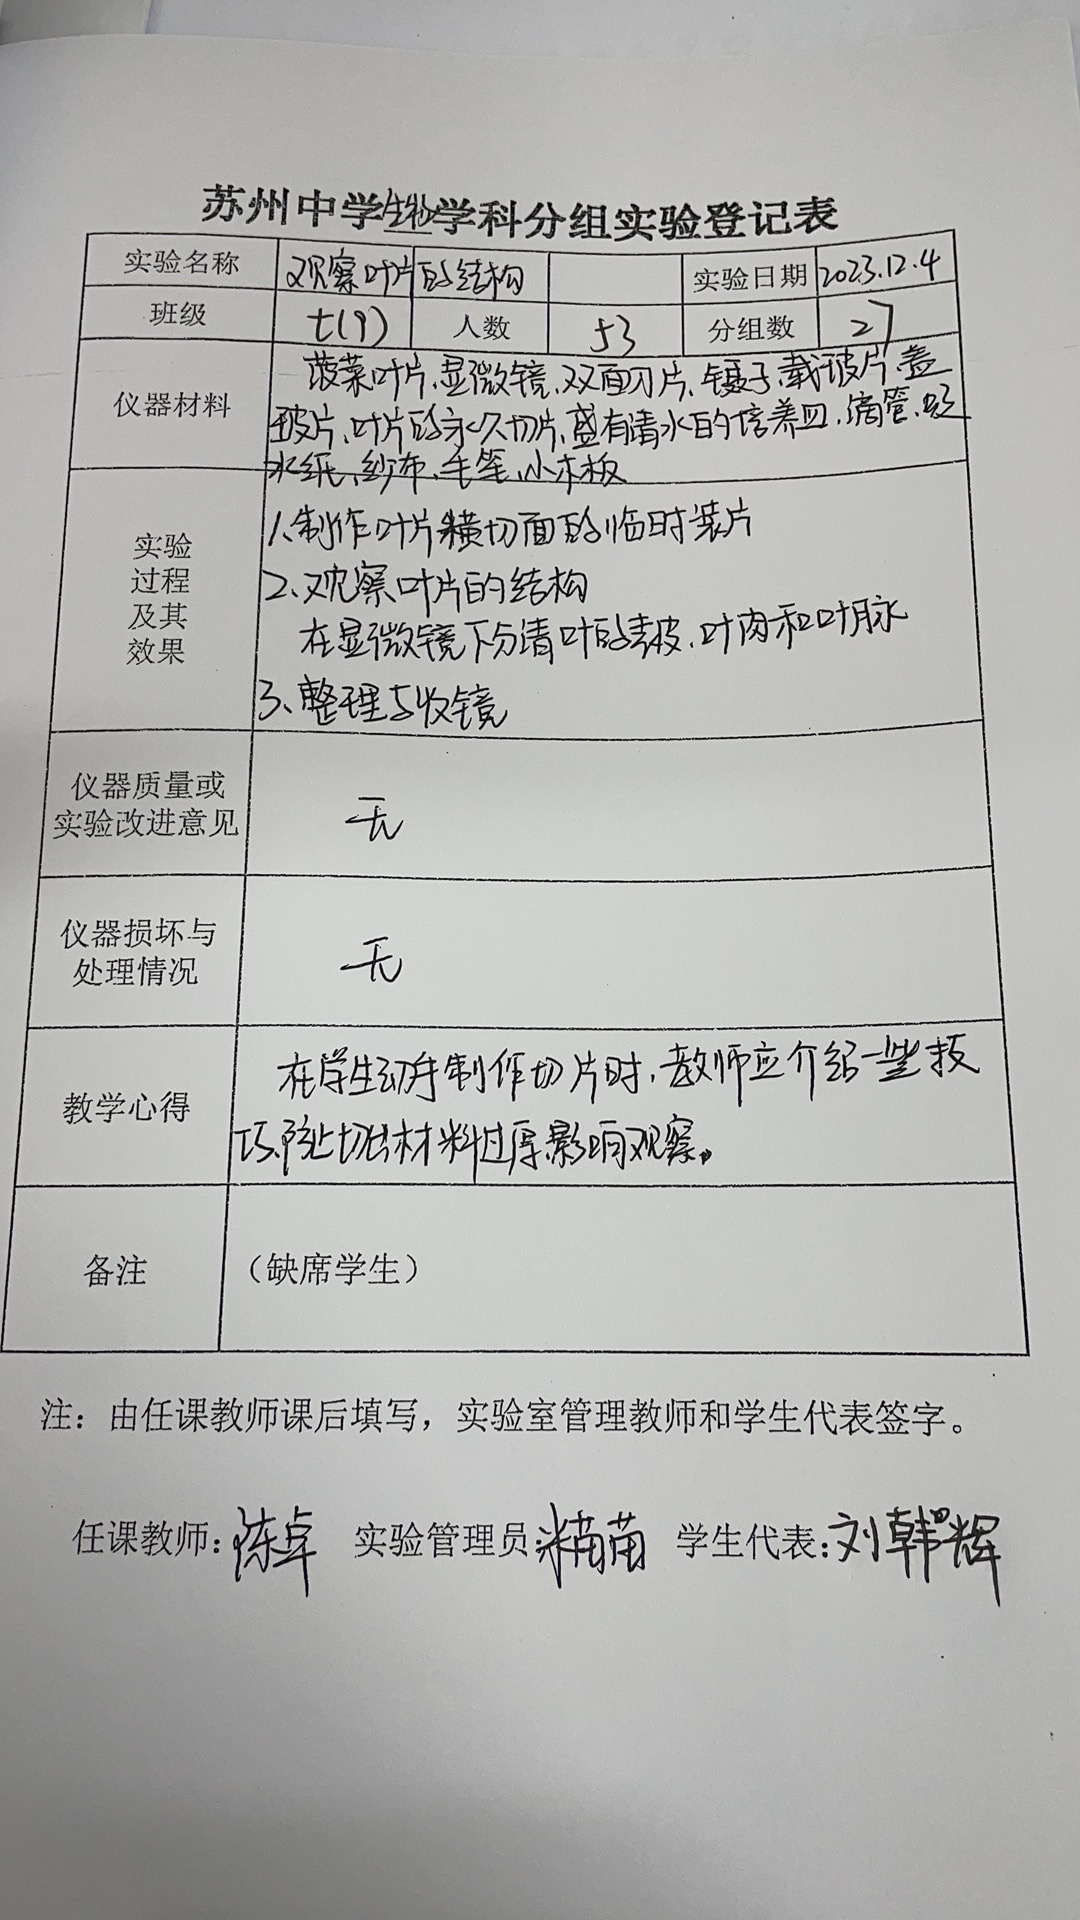 苏州中学生物学科分组实验登记表
实验名称 观察叶片的结构 实验日期 2023.12.4
班级 七(9) 人数 53 分组数 27
仪器材料
菠菜叶片、显微镜、双面刀片、镊子、载玻片、盖
玻片、叶片的永久切片、盛有清水的培养皿、滴管、吸
水纸、纱布、毛笔、小木板
实验
过程
及其
效果
1、制作叶片横切面的临时装片
2、观察叶片的结构
在显微镜下分清叶的表皮、叶肉和叶脉
3、整理与收镜
仪器质量或
实验改进意见
无
仪器损坏与
处理情况
无
教学心得
在学生动手制作切片时,教师应介绍一些技
巧,防止切出材料过厚影响观察。
备注 (缺席学生)
注：由任课教师课后填写，实验室管理教师和学生代表签字。
任课教师:陈卓 实验管理员: 学生代表:刘韩辉